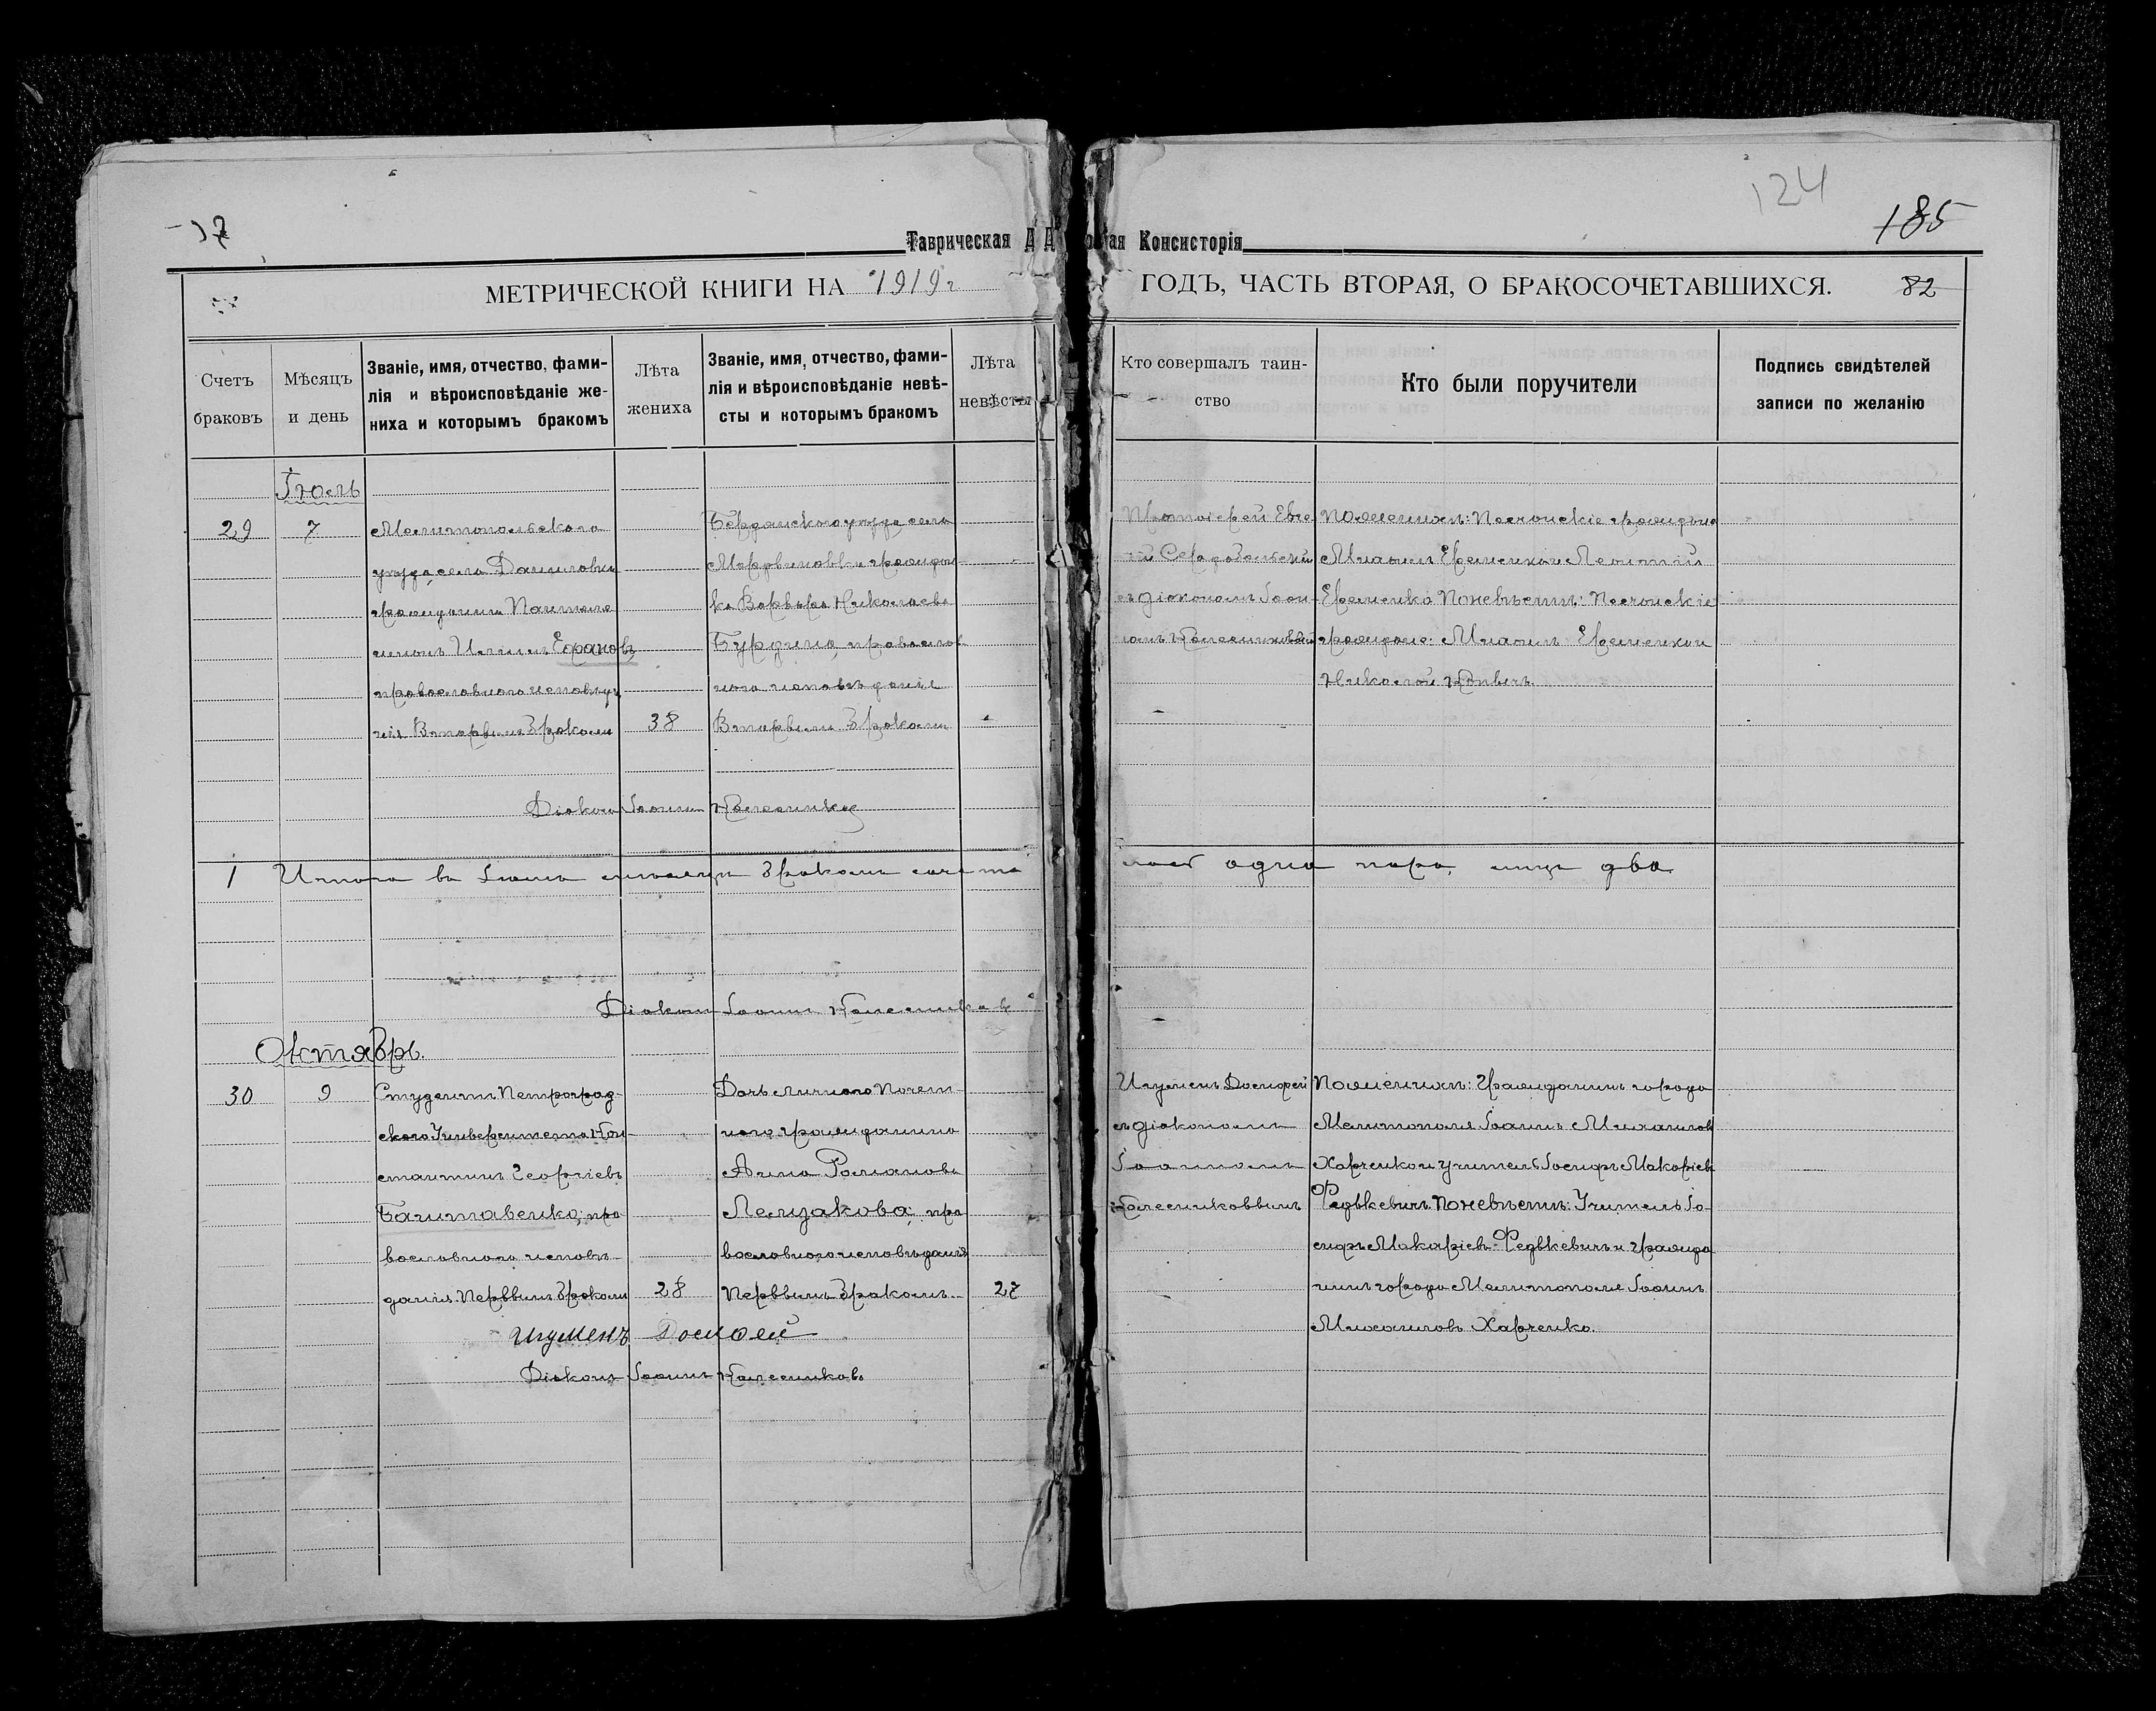 124
185
Таврическая Д
ая Консисторія
МЕТРИЧЕСКОЙ КНИГИ НА 1919 г
ГОДЪ, ЧАСТЬ ВТОРАЯ, О БРАКОСОЧЕТАВШИХСЯ.
82
Счетъ браковъ
Мѣсяцъ и день
Званіе, имя, отчество, фами-
лія и вѣроисповѣданіе же-
ниха и которымъ бракомъ
Лѣта жениха
Званіе, имя, отчество, фами-
лія и вѣроисповѣданіе невѣ-
сты и которымъ бракомъ
Лѣта невѣсты
Кто совершалъ таин-
ство
Кто были поручители
Подпись свидѣтелей
записи по желанію
Іюль
29
7
Мелитопольскаго
уѣзда села Даниловки
гражданинъ
православнаго исповѣда
нія Вторымъ бракомъ
38
Бердянскаго уѣзда села
ка Варвара Николаева
Бурдина, православ
наго исповѣданія
Вторымъ бракомъ
Протоіерей Евге
ній
съ діакономъ Іоан
номъ Колесниковым
По женихѣ: граждане
Михаилъ Еременко и Леонтій
Еременко По невѣстѣ:
граждане: Михаилъ Еременко и
Николай
Діаконъ Іоаннъ Колесников
1
Итого въ Іюлѣ мѣсяцѣ бракомъ сочета
лось одна пара, лицъ два
Діаконъ Іоаннъ Колесниковъ
Октябрь.
30
9
Студентъ Петроград-
скаго Университета Кон-
стантинъ Георгіевъ
Багитавенко, пра
вославнаго исповѣ-
данія. Первымъ бракомъ
28
Дочь личнаго Почет-
наго гражданина
Анна Романова
Лемзакова, пра
вославнаго исповѣданія
Первымъ бракомъ.
27
Игуменъ Досифей
съ діакономъ
Іоанномъ
Колесниковымъ
По женихѣ: Гражданинъ города
Мелитополя Іоаннъ Михаиловъ
Харченко и учитель Іосифъ Макаріевъ
Федькевичъ. По невѣстѣ: Учитель Іо-
сифъ Макаріевъ Федькевичъ и гражда
нинъ города Мелитополя Іоаннъ
Михаиловъ Харченко.
Игуменъ Досифей
Діаконъ Іоаннъ Колесниковъ